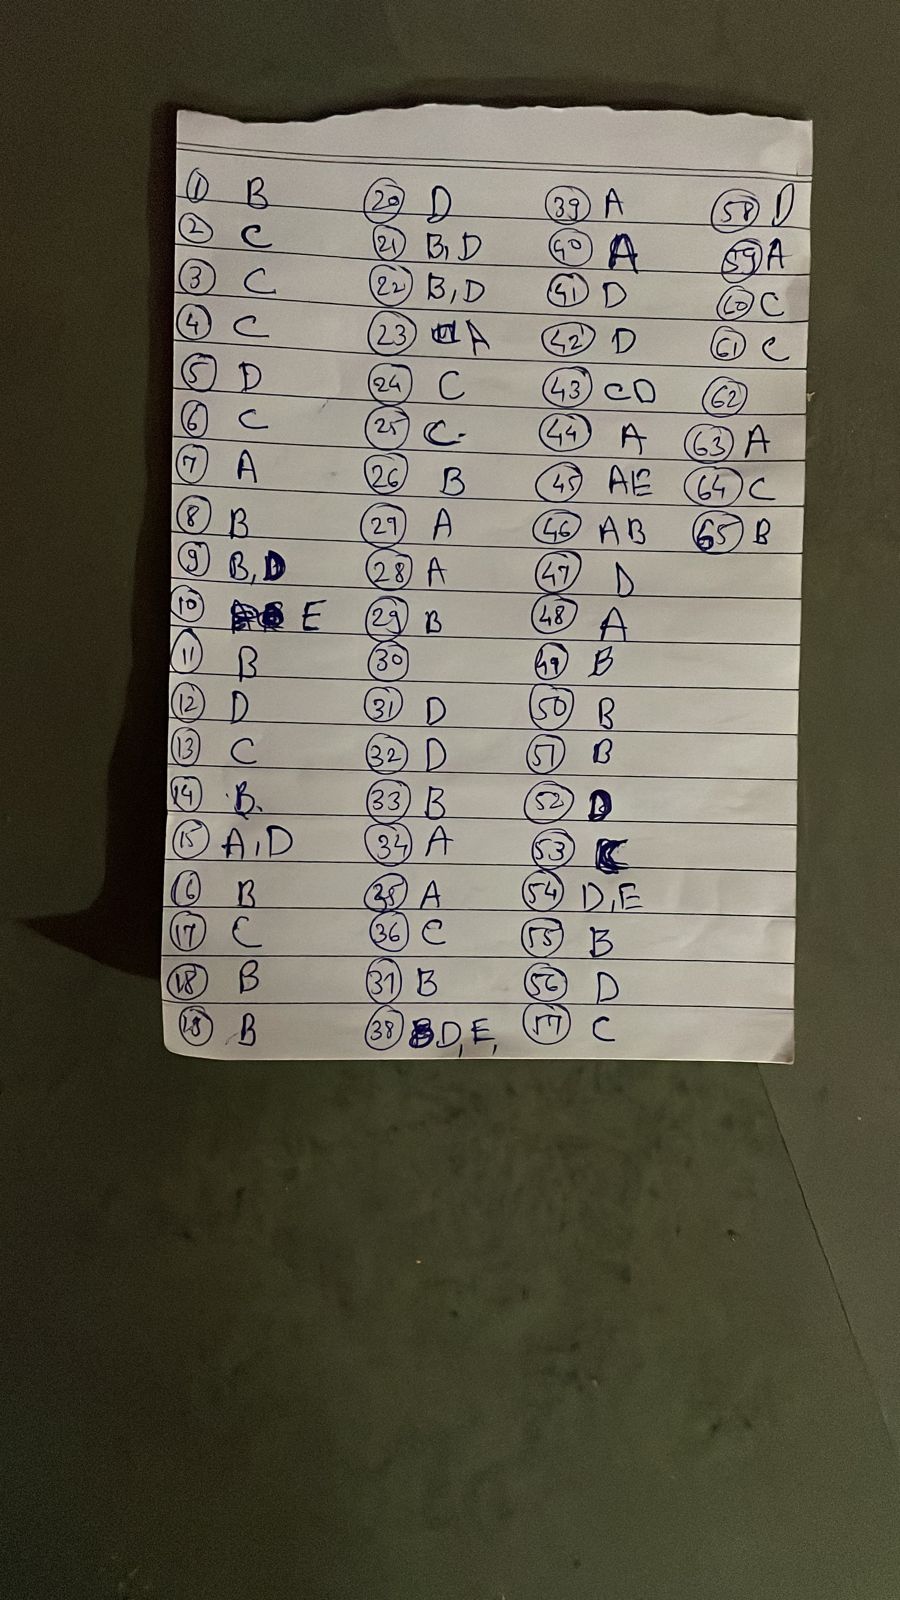 1 B
2 C
3 C
4 C
5 D
6 C
7 A
8 B
9 B, D
10 E
11 B
12 D
13 C
14 B.
15 A, D
16 B
17 C
18 B
B
20 D
21 B, D
22 B, D
23 A
24 C
25 C.
26 B
27 A
28 A
29 B
30
31 D
32 D
33 B
34 A
35 A
36 C
37 B
38 D, E,
39 A
40 A
41 D
42 D
43 CD
44 A
45 AE
46 AB
47 D
48 A
49 B
50 B
51 B
52 D
53 C
54 D, E
55 B
56 D
57 C
58 D
59 A
60 C
61 C
62
63 A
64 C
65 B